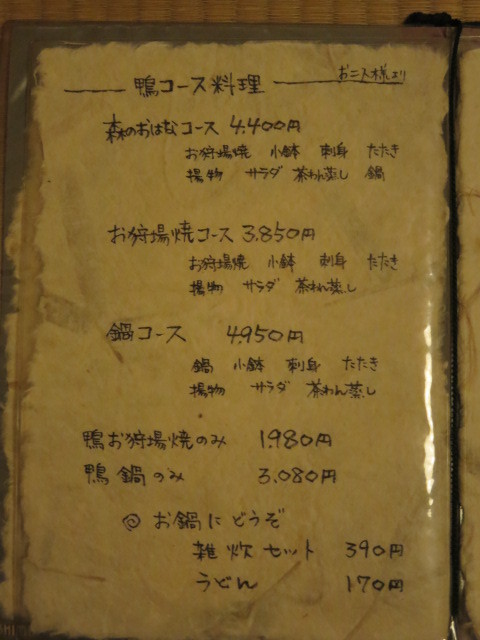 鴨コース料理 お二人様より
森のおはなコース 4,400円
お狩場焼 小鉢 刺身 たたき
揚物 サラダ 茶わん蒸し 鍋
お狩場焼コース 3,850円
お狩場焼 小鉢 刺身 たたき
揚物 サラダ 茶わん蒸し
鍋コース 4,950円
鍋 小鉢 刺身 たたき
揚物 サラダ 茶わん蒸し
鴨お狩場焼のみ 1,980円
鴨鍋のみ 3,080円
◎ お鍋にどうぞ
雑炊セット 390円
うどん 170円